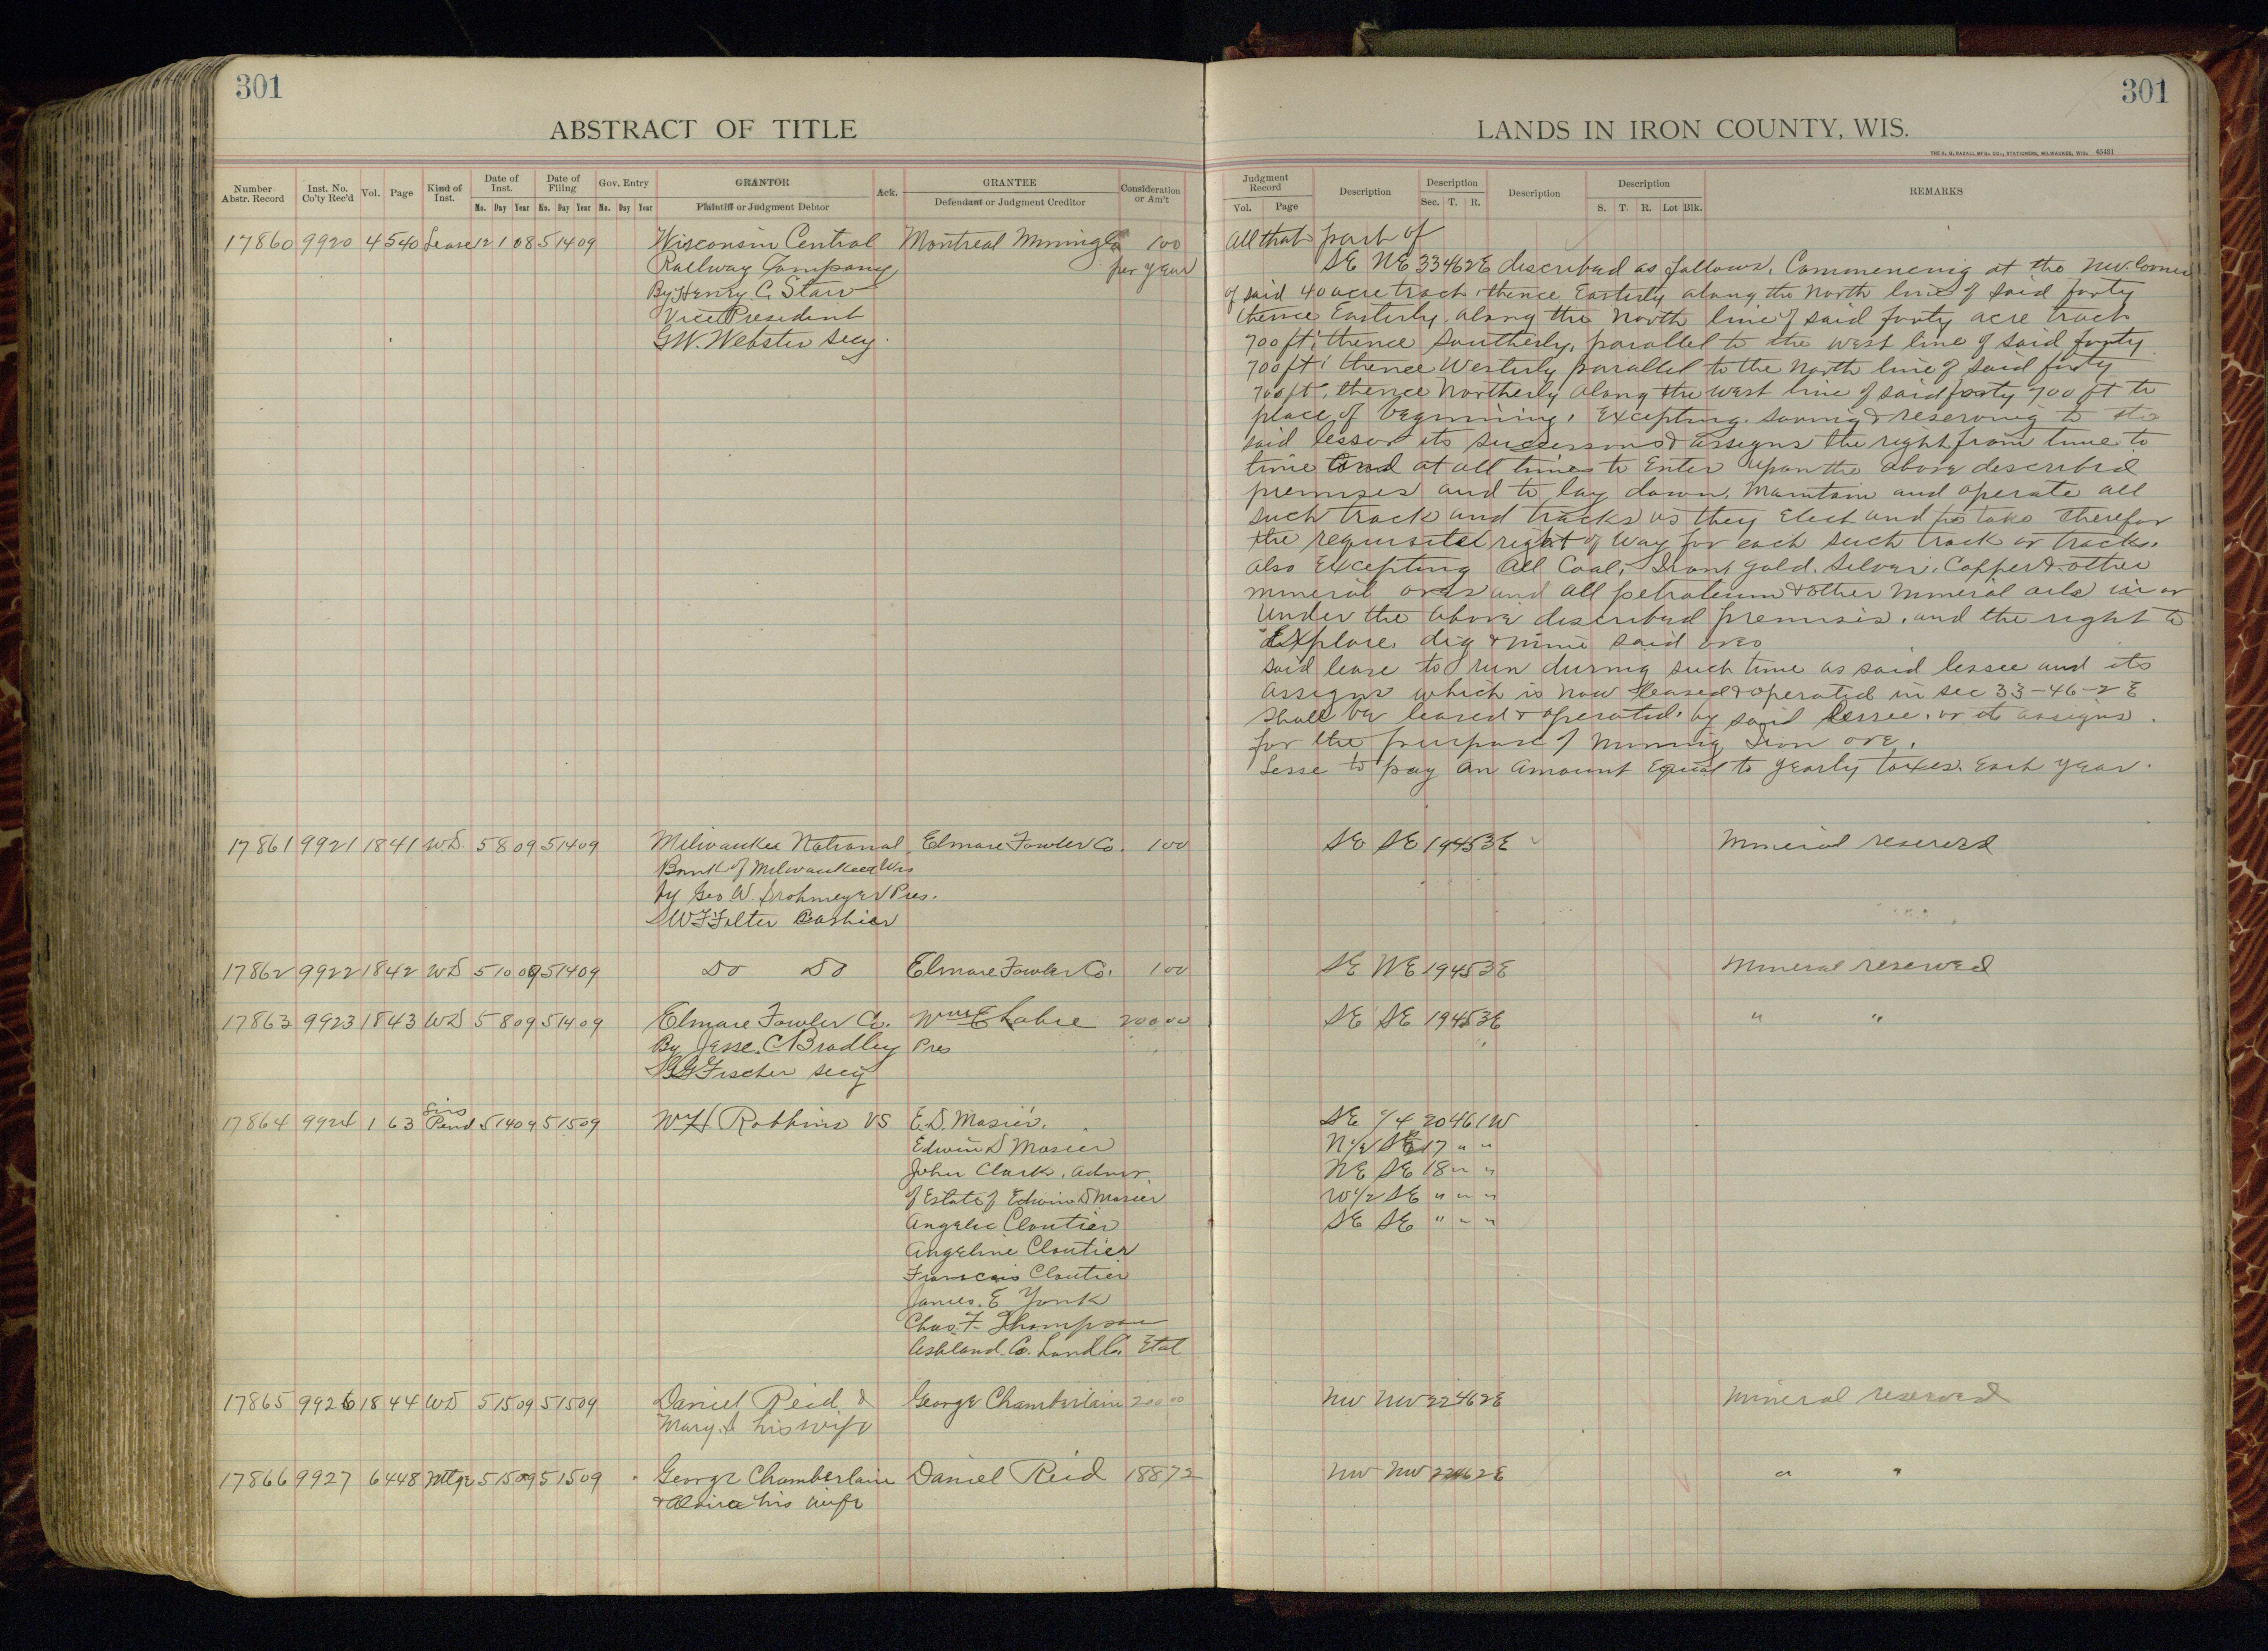 301
ABSTRACT OF TITLE
Number Abstr. Record
Inst. No. Co'ty Rec'd
Vol.
Page
Kind of Inst.
Date of Inst.
Mo. Day Year
Date of Filing
Mo. Day Year
Gov. Entry
Mo. Day Year
GRANTOR
Plaintiff or Judgment Debtor
Ack.
GRANTEE
Defendant or Judgment Creditor
Consideration or Am't
17860 9920 4 540 Lease 12 1 08 5 14 09 Wisconsin Central Montreal Mining Co 100
Railway Company per year
By Henry C. Starr
Vice President
G.W. Webster secy.
17861 9921 18 41 WD 5 8 09 5 14 09 Milwaukee National Elmore Fowler Co. 100
Bank of Milwaukee Wis
by Geo W. Strohmeyer Pres.
W F Filter Cashier
17862 9922 18 42 WD 5 10 09 5 14 09 Do Do Elmore Fowler Co. 100
17863 9923 18 43 WD 5 8 09 5 14 09 Elmore Fowler Co. Wm E 200 00
By Jesse C Bradley Pres
Fischer secy
17864 9924 1 63 Lis Pend 5 14 09 5 15 09 W H Robbins VS E. D. Mosier.
Edwin D Mosier
John Clark, Admr.
of Estate of Edwin D Mosier
Angelic Cloutier
Angeline Cloutier
Francois Cloutier
James. E York
Chas. F. Thompson
Ashland Co. Land Co. Etal
17865 9926 18 44 WD 5 15 09 5 15 09 Daniel Reid & George Chamberlain 200 00
Mary A his wife
17866 9927 6 448 Mtge 5 15 09 5 15 09 George Chamberlain Daniel Reid 188 72
& his wife
301
LANDS IN IRON COUNTY, WIS.
THE H. G. RAZALL MFG. CO., STATIONERS, MILWAUKEE, WIS. 45431
Judgment Record
Vol. Page
Description
Description
Sec. T. R.
Description
Description
S. T. R. Lot Blk.
REMARKS
All that part of
SE NE 33 46 2E described as follows, Commencing at the NW. Corner
of said 40 acre track, thence Easterly along the North line of said forty
thence Easterly along the North line of said forty acre track
700 ft; thence Southerly, parallel to the west line of said forty
700 ft; thence Westerly parallel to the North line of said forty
700 ft, thence Northerly along the west line of said forty 700 ft to
place of beginning, Excepting, saving & reserving to the
said lessor its successors & assigns the right from time to
time and at all times to Enter upon the above described
premises and to lay down, Maintain and operate all
such track and tracks as they Elect and to take therefor
the requisite right of way for each such track or tracks.
also Excepting all Coal, Iron, gold, Silver, Copper & other
mineral ores and all petroleum & other mineral oils in or
under the above described premises, and the right to
Explore, dig & mine said ores
said lease to run during such time as said lessee and its
assigns which is now leased & operated in sec 33-46-2 E
shall be leased & operated, by said lessee, or its assigns
for the purpose of mining Iron ore.
Lesse to pay an amount Equal to yearly taxes Each year.
SE SE 19 45 3E Mineral reserved
SE NE 19 45 3E Mineral reserved
SE SE 19 45 3E " "
SE 1/4 20 46 1W
N 1/2 SE 17 " "
NE SE 18 " "
W 1/2 SE " " "
SE SE " " "
NW NW 22 46 2E Mineral reserved
NW NW 22 46 2E " "